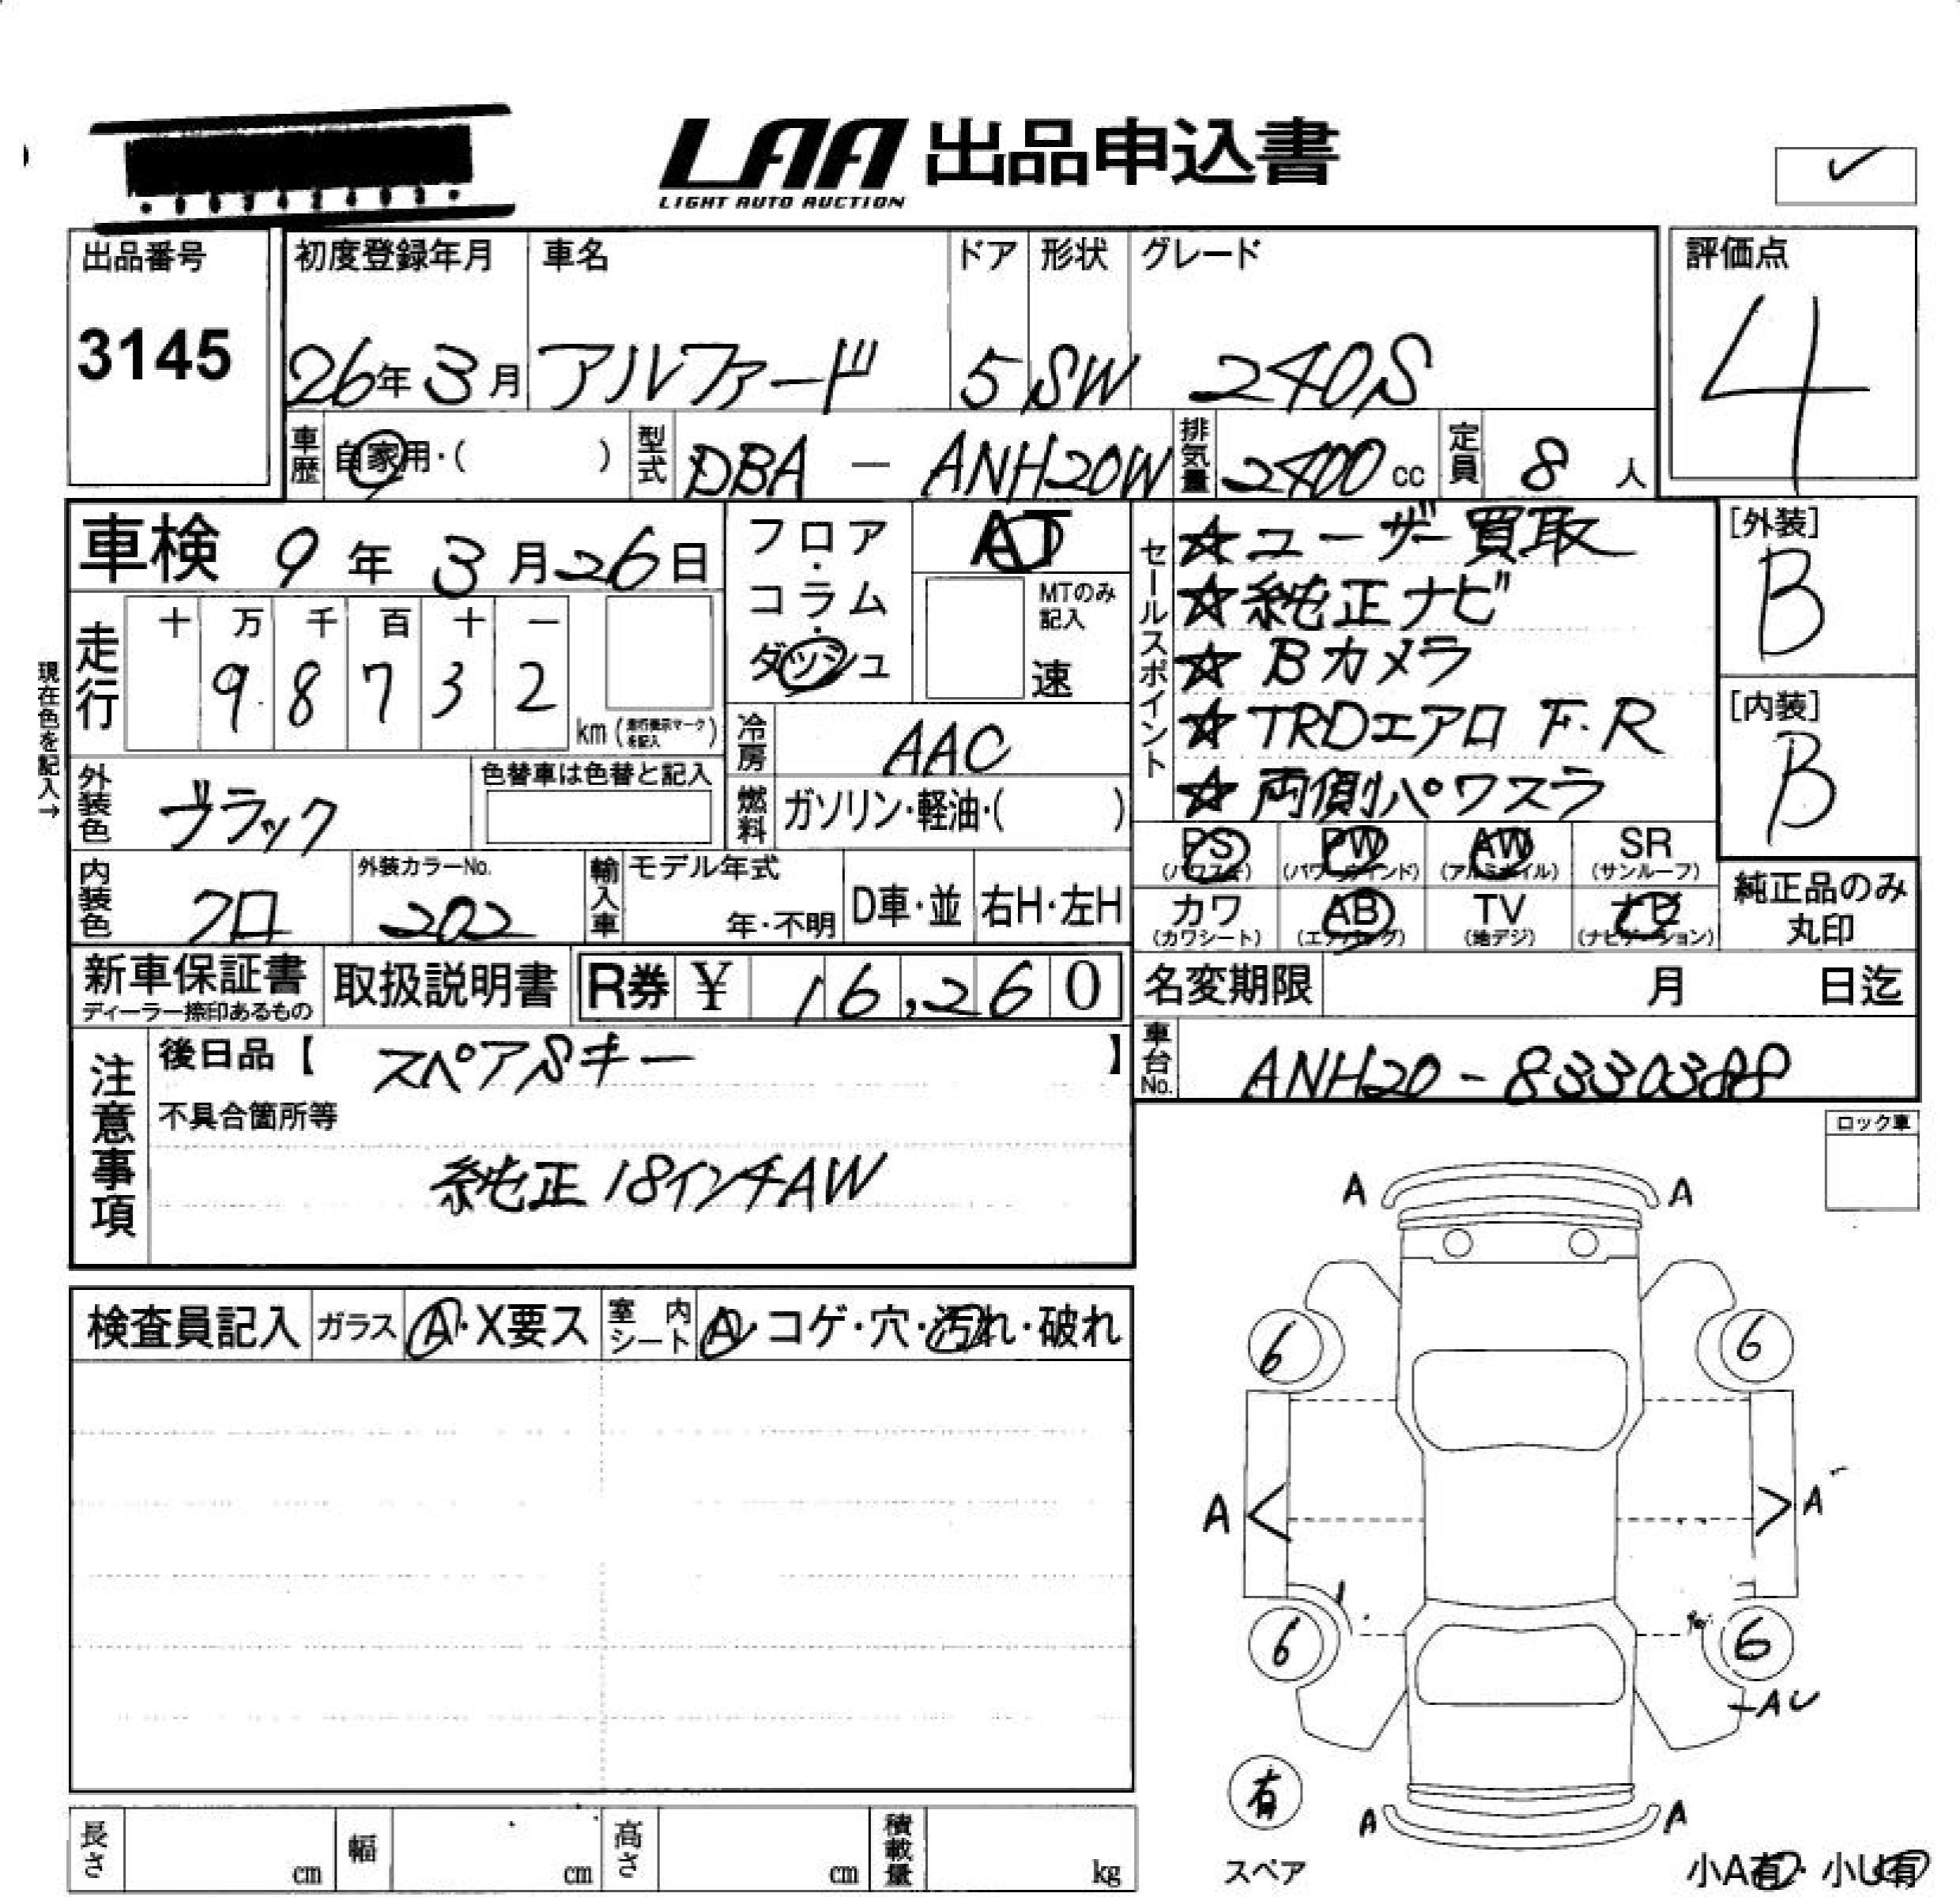 LAA 出品申込書
LIGHT AUTO AUCTION
✓
出品番号
3145
初度登録年月 車名 ドア 形状 グレード
26年3月 アルファード 5 SW 240S
評価点
4
車歴 自家用・( ) 型式 DBA - ANH20W 排気量 2400 cc 定員 8 人
車検 9年3月26日
フロア・コラム・ダッシュ
AT
MTのみ記入
速
走行
十 万 千 百 十 一
9 8 7 3 2
km (走行表示マークを記入)
現在色を記入→
冷房 AAC
燃料 ガソリン・軽油・( )
セールスポイント
☆ユーザー買取
☆純正ナビ
☆Bカメラ
☆TRDエアロ F・R
☆両側パワスラ
[外装]
B
[内装]
B
外装色 ブラック
色替車は色替と記入
内装色 クロ
外装カラーNo.
202
輸入車 モデル年式
年・不明 D車・並 右H・左H
PS PW AW SR
(パワステ) (パワーウインド) (アルミホイル) (サンルーフ)
カワ AB TV ナビ
(カワシート) (エアバッグ) (地デジ) (ナビゲーション)
純正品のみ
丸印
新車保証書 取扱説明書 R券 ¥ 16,260
ディーラー捺印あるもの
名変期限 月 日迄
車台No. ANH20-8330388
注意事項
後日品【 スペアSキー 】
不具合箇所等
純正18インチAW
ロック車
検査員記入 ガラス A・X要ス 室内シート A・コゲ・穴・汚れ・破れ
A A
6 6
A < > A
6 6
AU
有
スペア
A A
小A有・小U有
長さ cm 幅 cm 高さ cm 積載量 kg